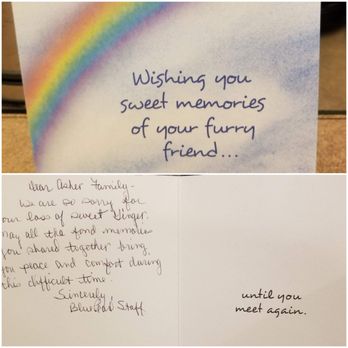 Wishing you
sweet memories
of your furry
friend...
Dear Asher Family-
We are so sorry for
our loss of sweet Ginger.
may all the fond memories
you shared together bring
you peace and comfort during
this difficult time.
Sincerely,
Staff
until you
meet again.